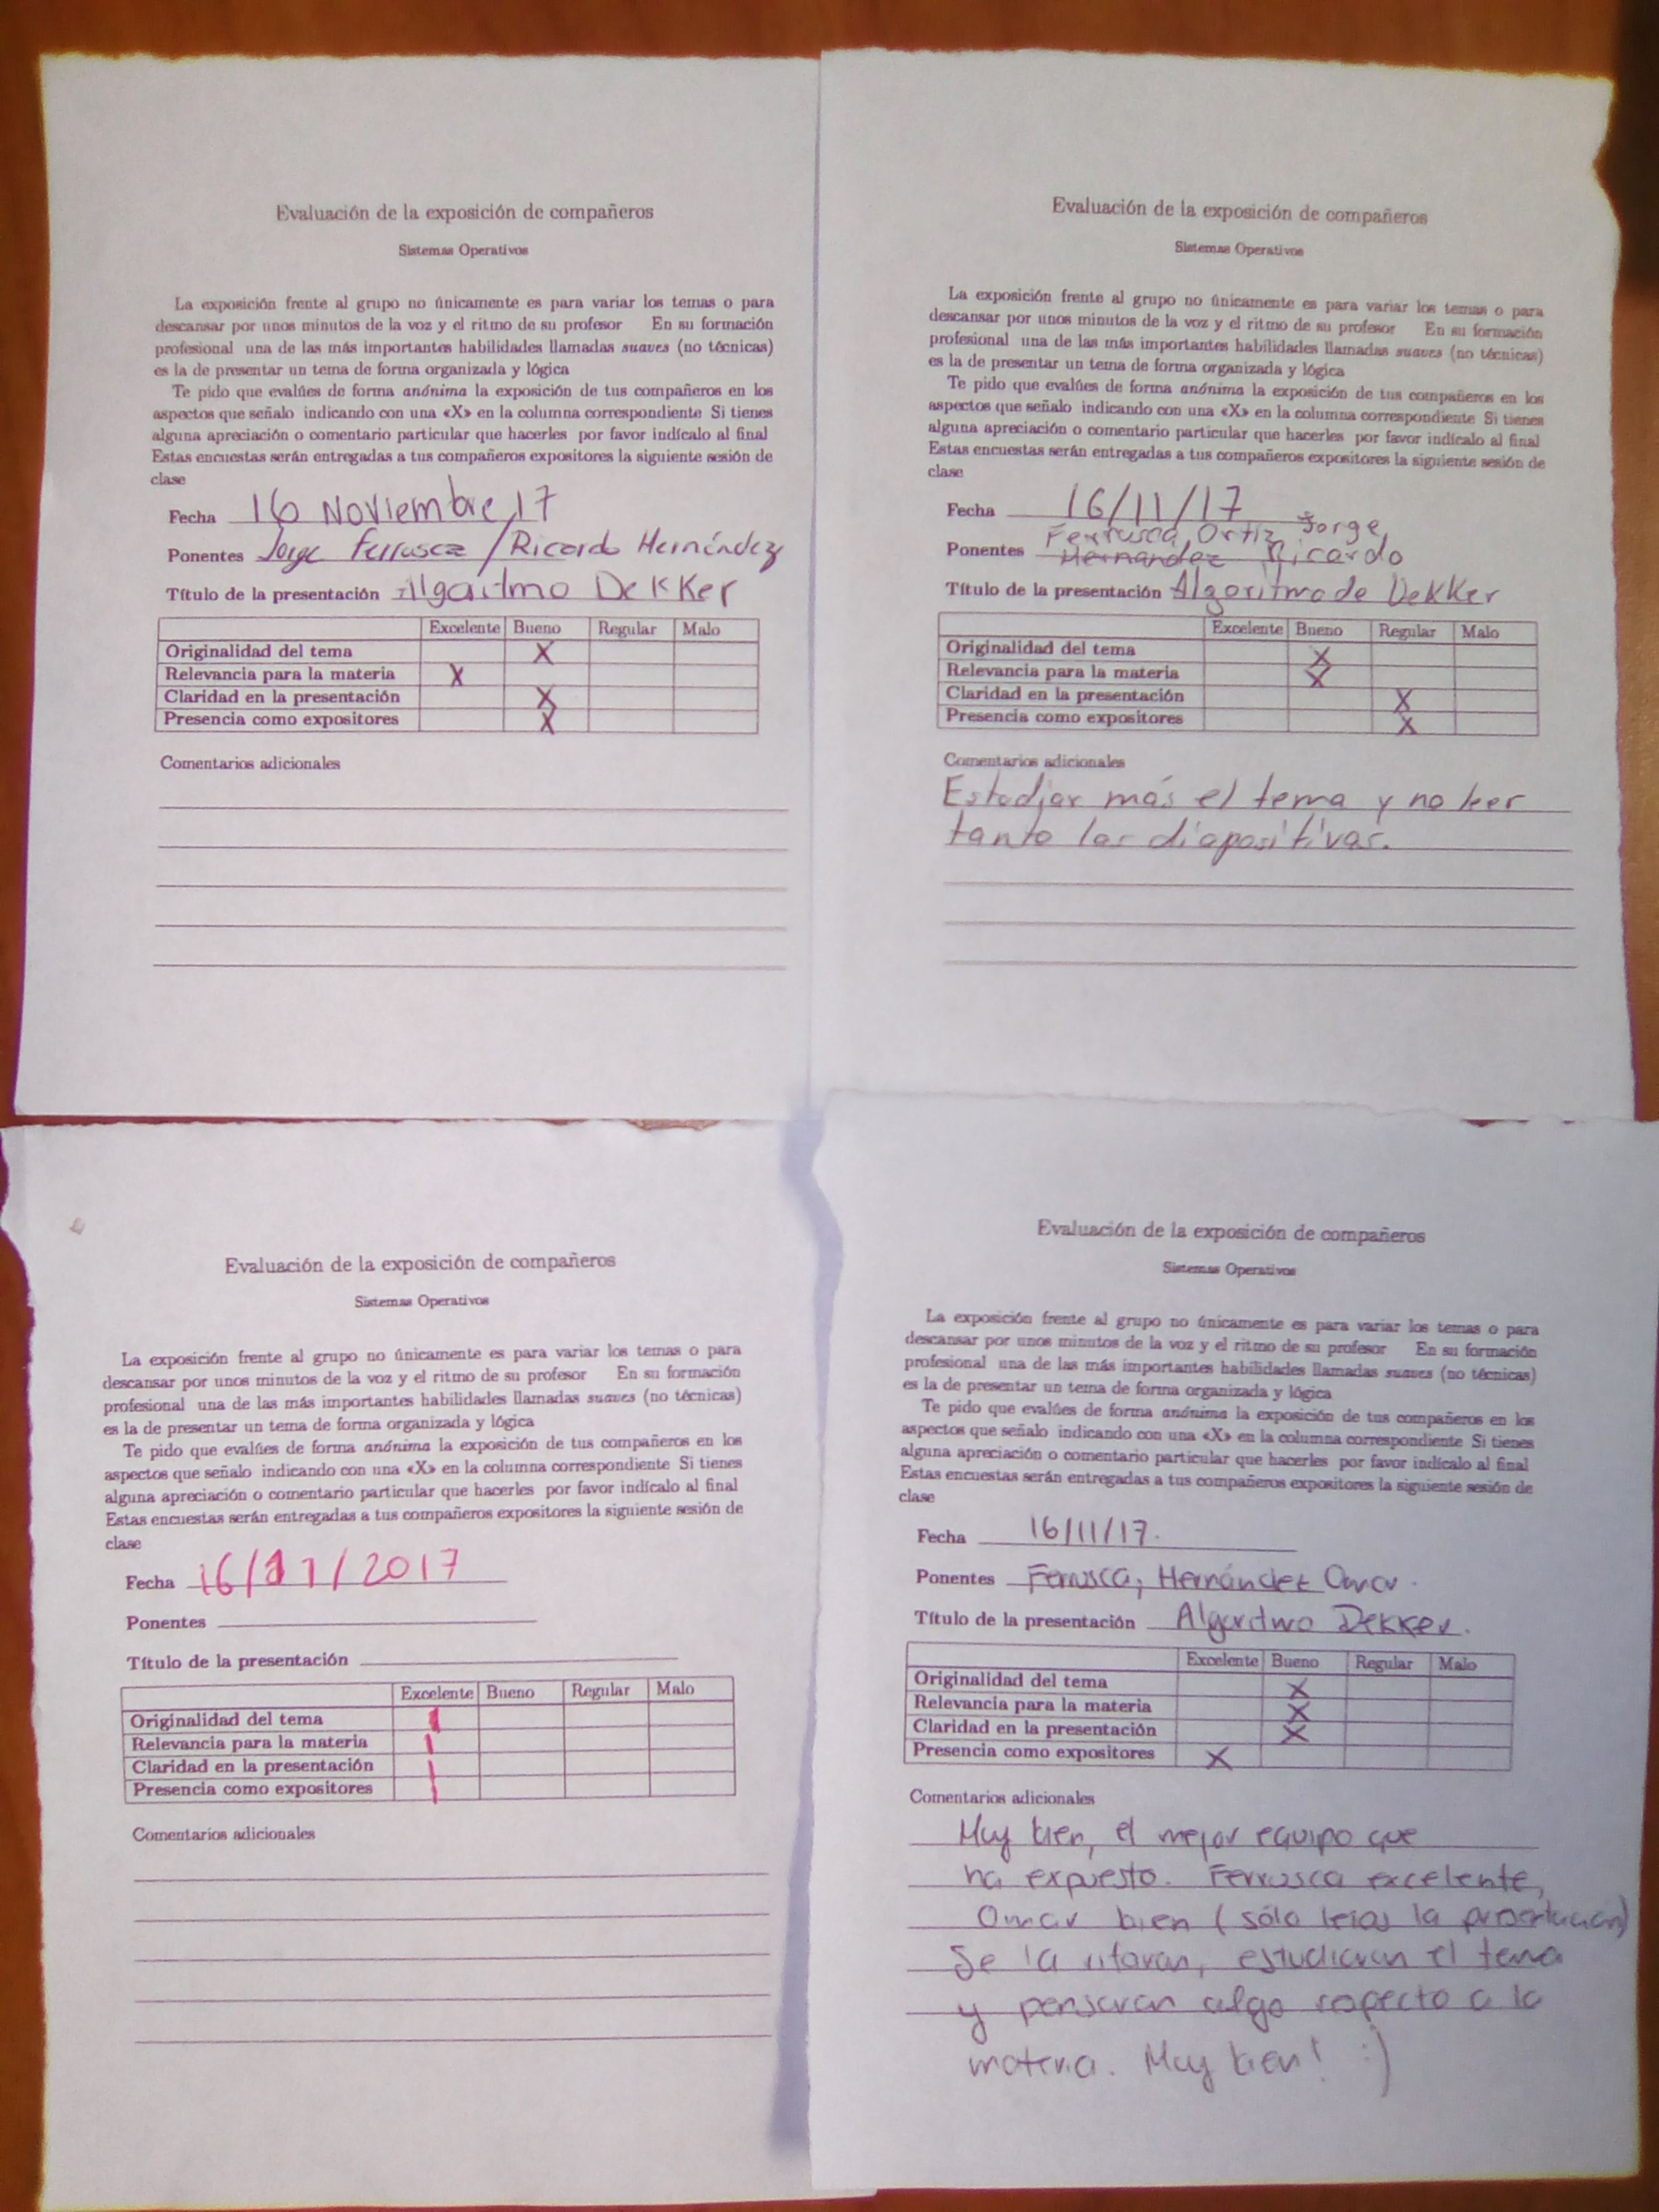 Evaluación de la exposición de compañeros
Sistemas Operativos
La exposición frente al grupo no únicamente es para variar los temas o para
descansar por unos minutos de la voz y el ritmo de su profesor En su formación
profesional una de las más importantes habilidades llamadas suaves (no técnicas)
es la de presentar un tema de forma organizada y lógica
Te pido que evalúes de forma anónima la exposición de tus compañeros en los
aspectos que señalo indicando con una «X» en la columna correspondiente Si tienes
alguna apreciación o comentario particular que hacerles por favor indícalo al final
Estas encuestas serán entregadas a tus compañeros expositores la siguiente sesión de
clase
Fecha 16 Noviembre, 17
Ponentes Jorge Ferrusca / Ricardo Hernández
Título de la presentación Algoritmo Dekker
Excelente Bueno Regular Malo
Originalidad del tema X
Relevancia para la materia X
Claridad en la presentación X
Presencia como expositores X
Comentarios adicionales
Evaluación de la exposición de compañeros
Sistemas Operativos
La exposición frente al grupo no únicamente es para variar los temas o para
descansar por unos minutos de la voz y el ritmo de su profesor En su formación
profesional una de las más importantes habilidades llamadas suaves (no técnicas)
es la de presentar un tema de forma organizada y lógica
Te pido que evalúes de forma anónima la exposición de tus compañeros en los
aspectos que señalo indicando con una «X» en la columna correspondiente Si tienes
alguna apreciación o comentario particular que hacerles por favor indícalo al final
Estas encuestas serán entregadas a tus compañeros expositores la siguiente sesión de
clase
Fecha 16/11/17
Ferrusca Ortiz Jorge
Ponentes Hernandez Ricardo
Título de la presentación Algoritmo de Dekker
Excelente Bueno Regular Malo
Originalidad del tema X
Relevancia para la materia X
Claridad en la presentación X
Presencia como expositores X
Comentarios adicionales
Estudiar más el tema y no leer
tanto las diapositivas.
Evaluación de la exposición de compañeros
Sistemas Operativos
La exposición frente al grupo no únicamente es para variar los temas o para
descansar por unos minutos de la voz y el ritmo de su profesor En su formación
profesional una de las más importantes habilidades llamadas suaves (no técnicas)
es la de presentar un tema de forma organizada y lógica
Te pido que evalúes de forma anónima la exposición de tus compañeros en los
aspectos que señalo indicando con una «X» en la columna correspondiente Si tienes
alguna apreciación o comentario particular que hacerles por favor indícalo al final
Estas encuestas serán entregadas a tus compañeros expositores la siguiente sesión de
clase
Fecha 16/11/2017
Ponentes
Título de la presentación
Excelente Bueno Regular Malo
Originalidad del tema
Relevancia para la materia
Claridad en la presentación
Presencia como expositores
Comentarios adicionales
Evaluación de la exposición de compañeros
Sistemas Operativos
La exposición frente al grupo no únicamente es para variar los temas o para
descansar por unos minutos de la voz y el ritmo de su profesor En su formación
profesional una de las más importantes habilidades llamadas suaves (no técnicas)
es la de presentar un tema de forma organizada y lógica
Te pido que evalúes de forma anónima la exposición de tus compañeros en los
aspectos que señalo indicando con una «X» en la columna correspondiente Si tienes
alguna apreciación o comentario particular que hacerles por favor indícalo al final
Estas encuestas serán entregadas a tus compañeros expositores la siguiente sesión de
clase
Fecha 16/11/17.
Ponentes Ferrusca, Hernández Omar.
Título de la presentación Algoritmo Dekker.
Excelente Bueno Regular Malo
Originalidad del tema X
Relevancia para la materia X
Claridad en la presentación X
Presencia como expositores X
Comentarios adicionales
Muy bien, el mejor equipo que
ha expuesto. Ferrusca excelente,
Omar bien (sólo leías la presentación)
Se la , estudiaran el tema
y pensaran algo respecto a la
materia. Muy bien! :)